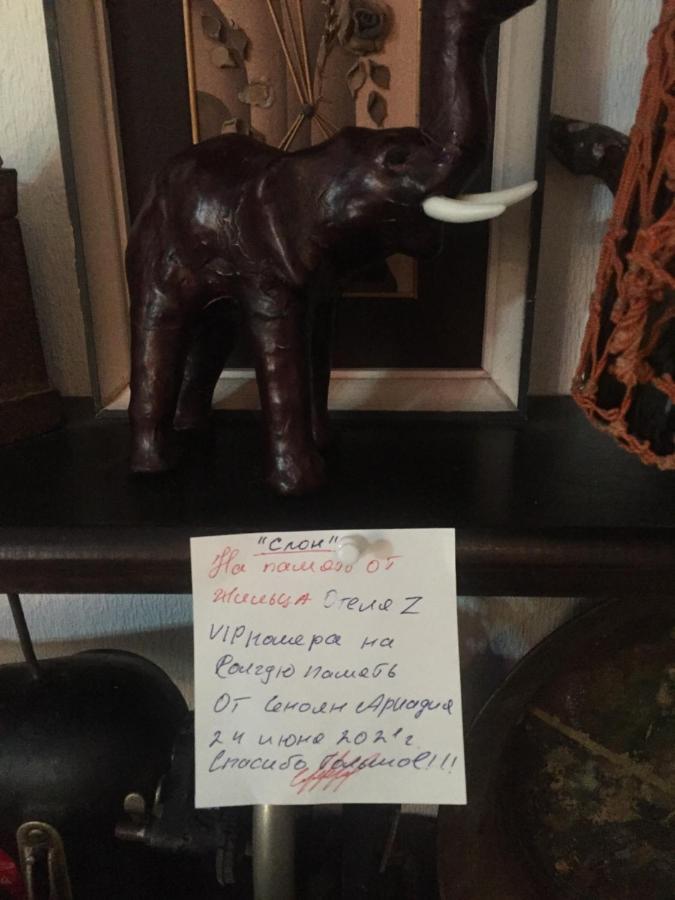 "Слон"
На память от
жильца Отеля Z
VIP номера на
Долгую память
От Сеноян Аркадия
24 июня 2021 г.
Спасибо Большое!!!